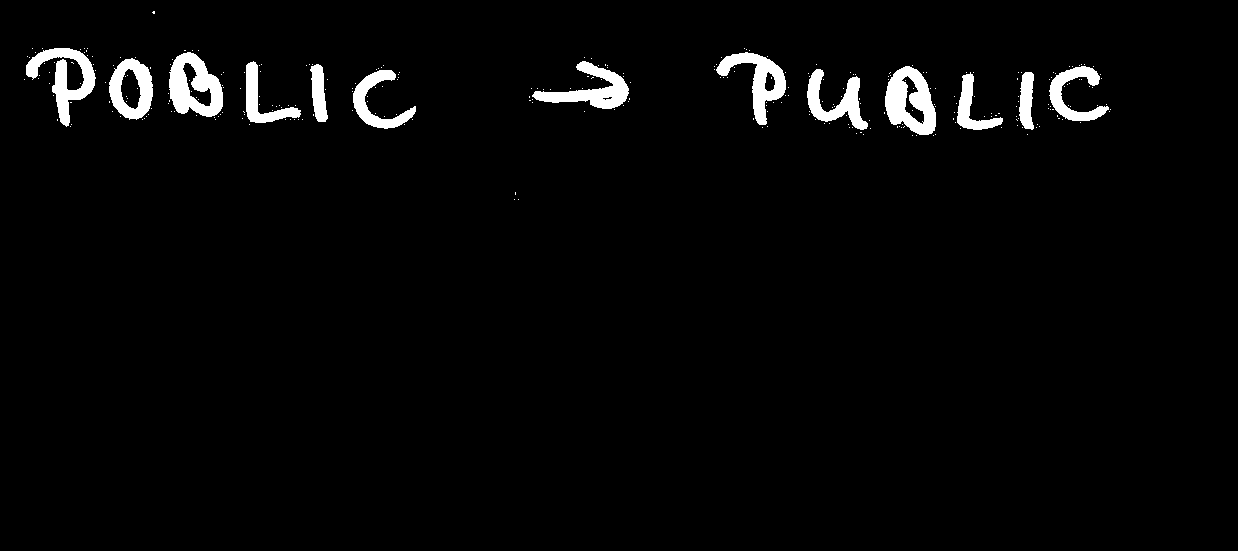 POBLIC → PUBLIC